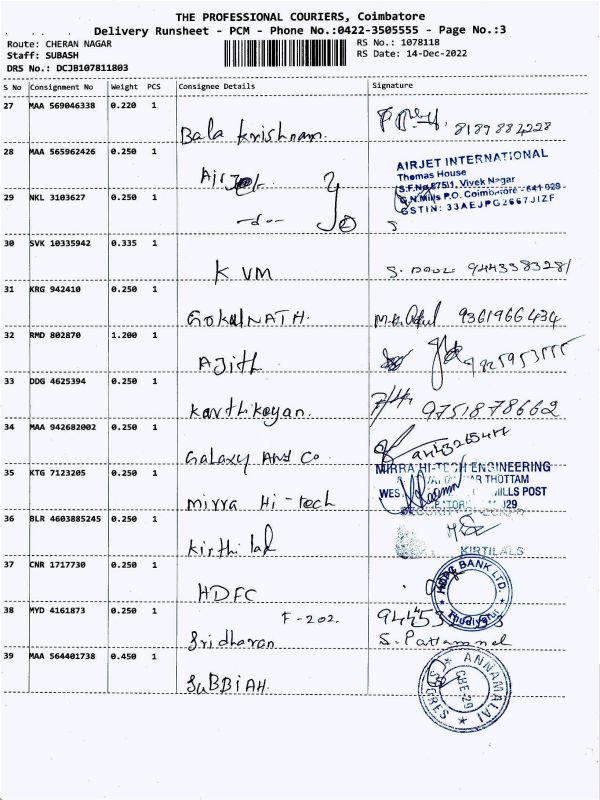 THE PROFESSIONAL COURIERS, Coimbatore
Delivery Runsheet - PCM - Phone No.:0422-3505555 - Page No.:3
Route: CHERAN NAGAR
Staff: SUBASH
DRS No.: DCJB107811803
RS No.: 1078118
RS Date: 14-Dec-2022
S No Consignment No Weight PCS Consignee Details Signature
27 MAA 569046338 0.220 1
Bala Krishnan. 8189884228
28 MAA 565962426 0.250 1
AIRJET INTERNATIONAL
Thomas House
S.F.No.875/1, Vivek Nagar
G.N.Mills P.O. Coimbatore - 641 029
GSTIN: 33AEJPG2667J1ZF
29 NKL 3103627 0.250 1
-do-
30 SVK 10335942 0.335 1
KVM 9443383281
31 KRG 942410 0.250 1
GOKULNATH. 9361966434
32 RMD 802870 1.200 1
AJith
33 DDG 4625394 0.250 1
Karthikeyan. 9751878662
34 MAA 942682002 0.250 1
Galaxy And Co
35 KTG 7123205 0.250 1
MIRRA HI-TECH ENGINEERING
THOTTAM
MILLS POST
mirra Hi-tech
36 BLR 4603885245 0.250 1
Kirthi lal
KIRTILALS
37 CNR 1717730 0.250 1
HDFC
HDFC BANK LTD.
38 MYD 4161873 0.250 1
F-202.
Sridharan
39 MAA 564401738 0.450 1
SuBBiAH.
ANNAMALAI
CBE-29